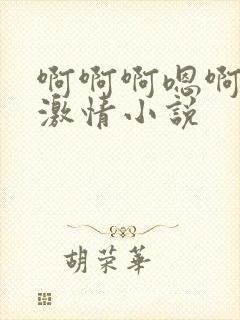 啊啊啊嗯啊
激情小说
胡荣华